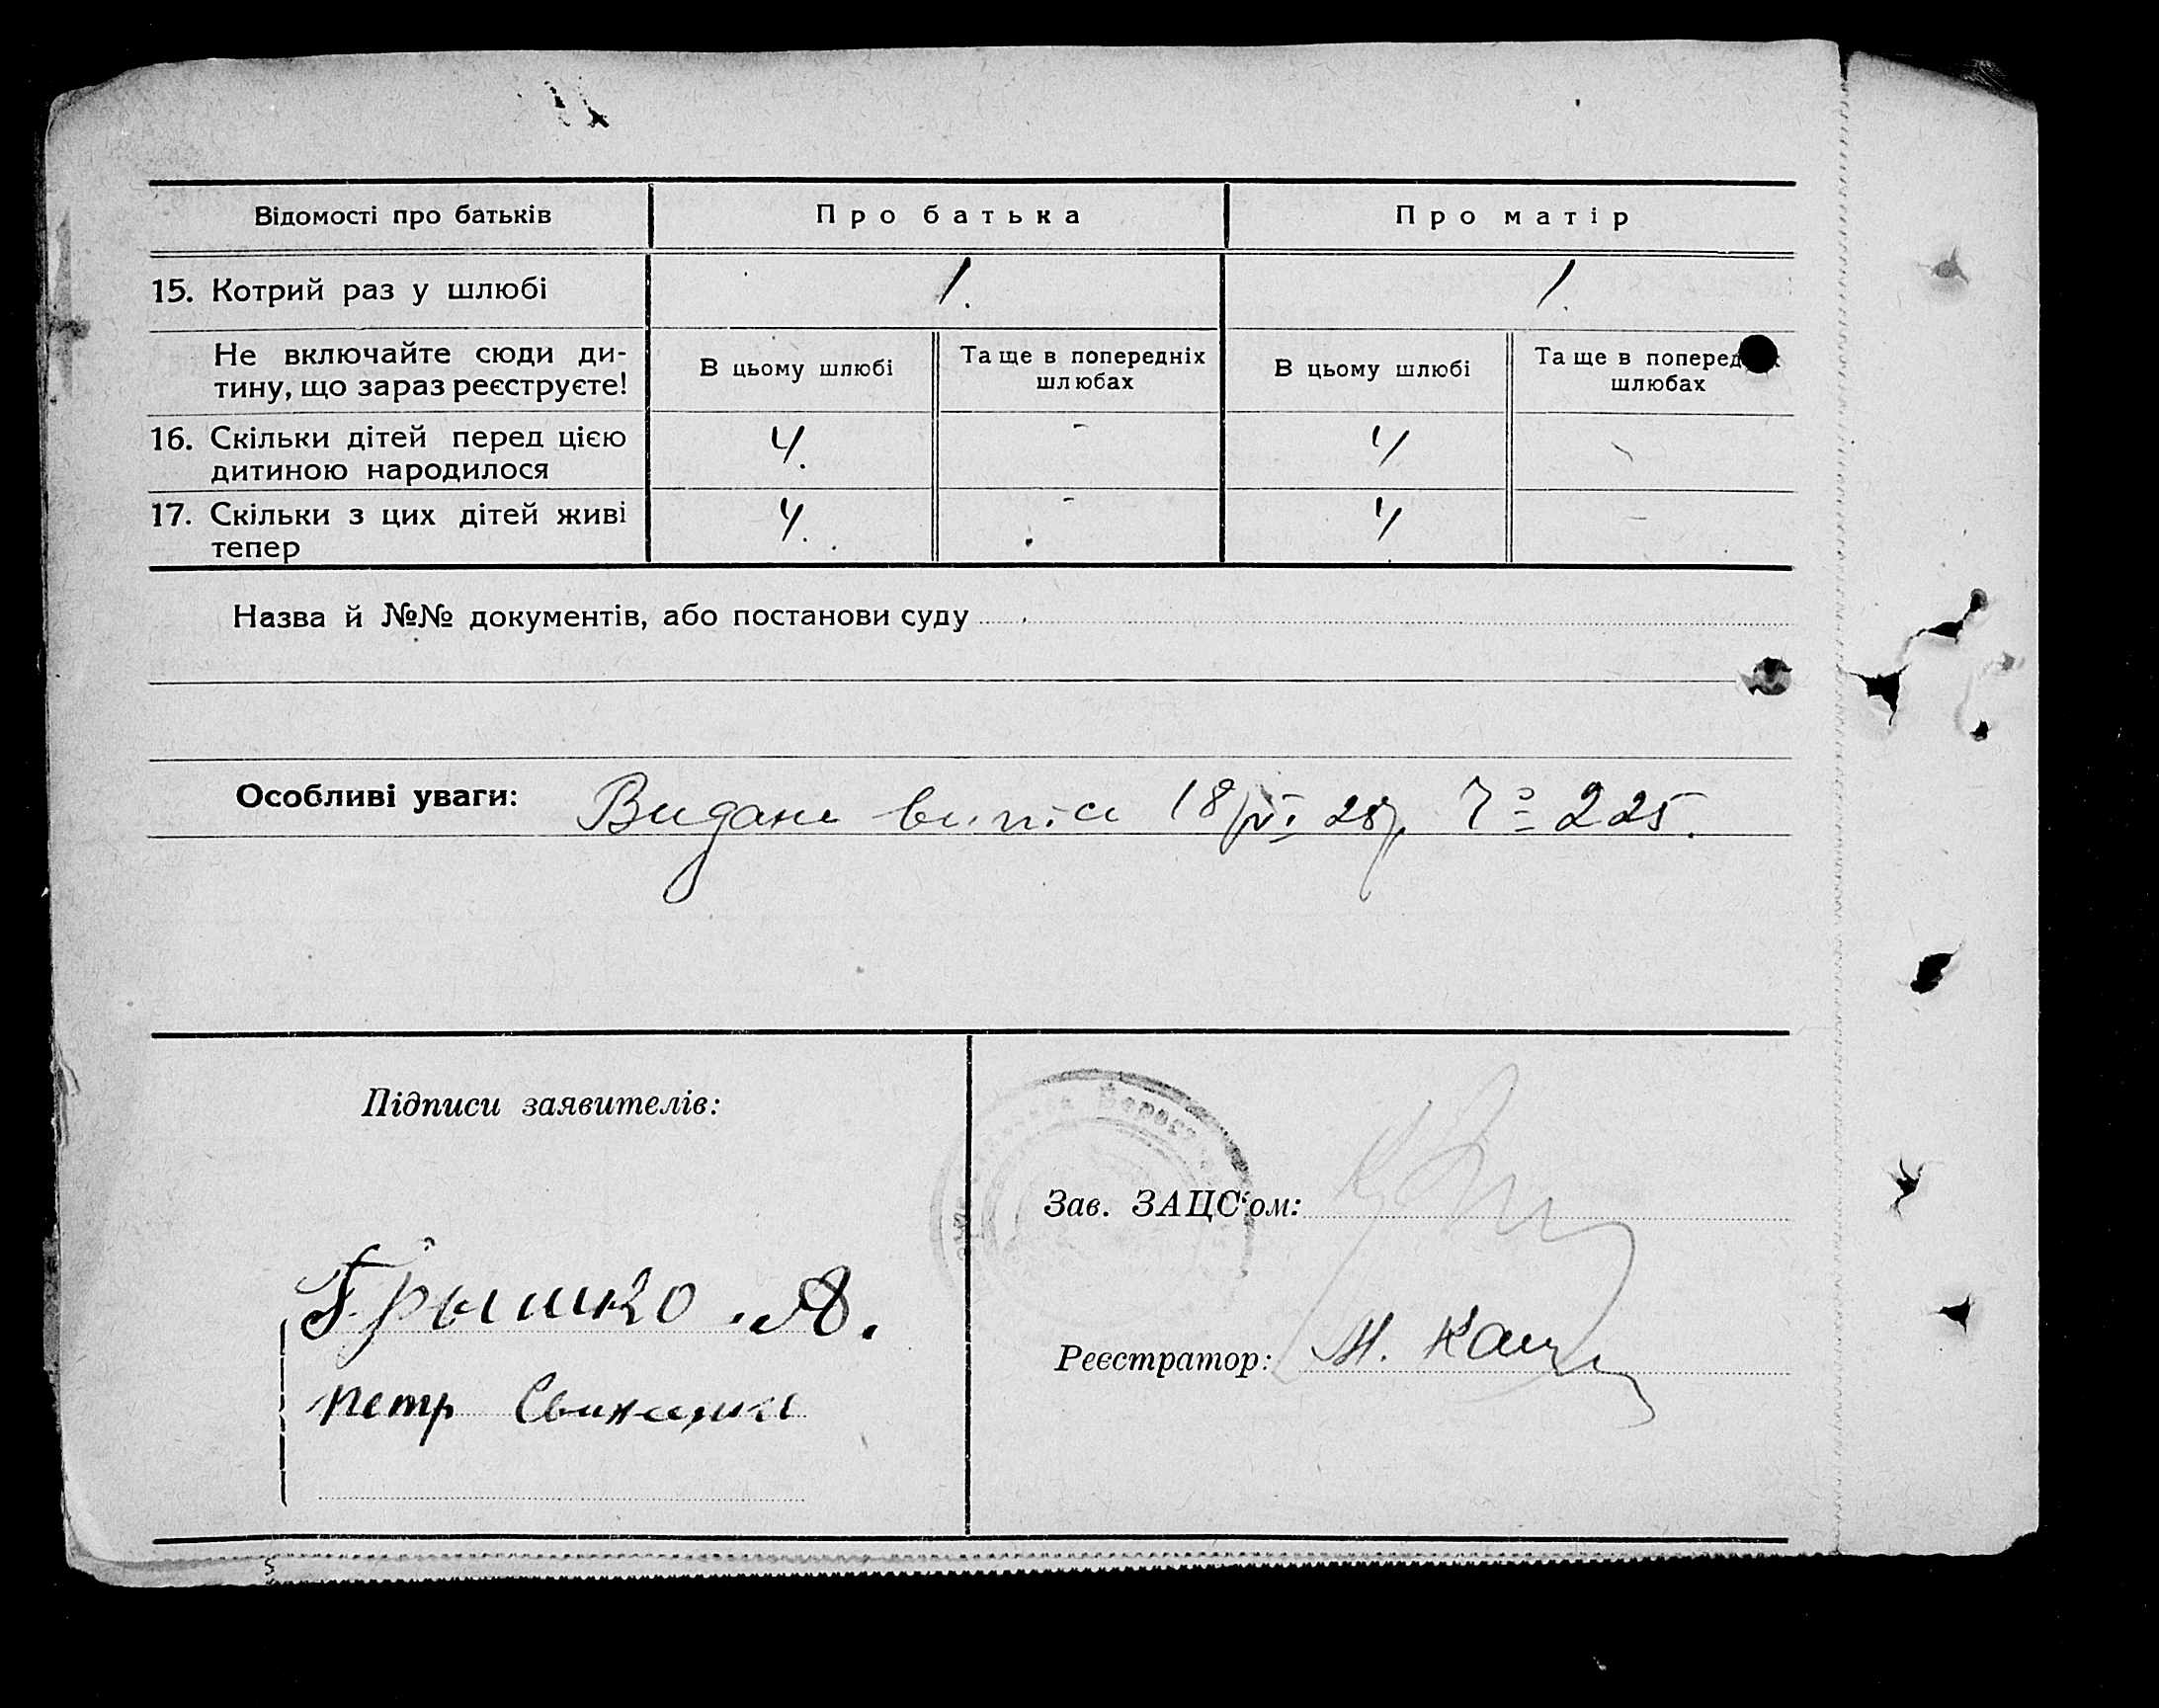 Відомості про батьків Про батька Про матір
15. Котрий раз у шлюбі 1. 1.
Не включайте сюди ди-
тину, що зараз реєструєте!
В цьому шлюбі
Та ще в попередніх
шлюбах
В цьому шлюбі
Та ще в
шлюбах
16. Скільки дітей перед цією
дитиною народилося
4. - 4 -
17. Скільки з цих дітей живі
тепер
4. - 4 -
Назва й №№ документів, або постанови суду
Особливі уваги: Видано 18/VI 28р. № 225.
Підписи заявителів:
Зав. ЗАЦС'ом:
Грышко А.
Реєстратор: М.
петр